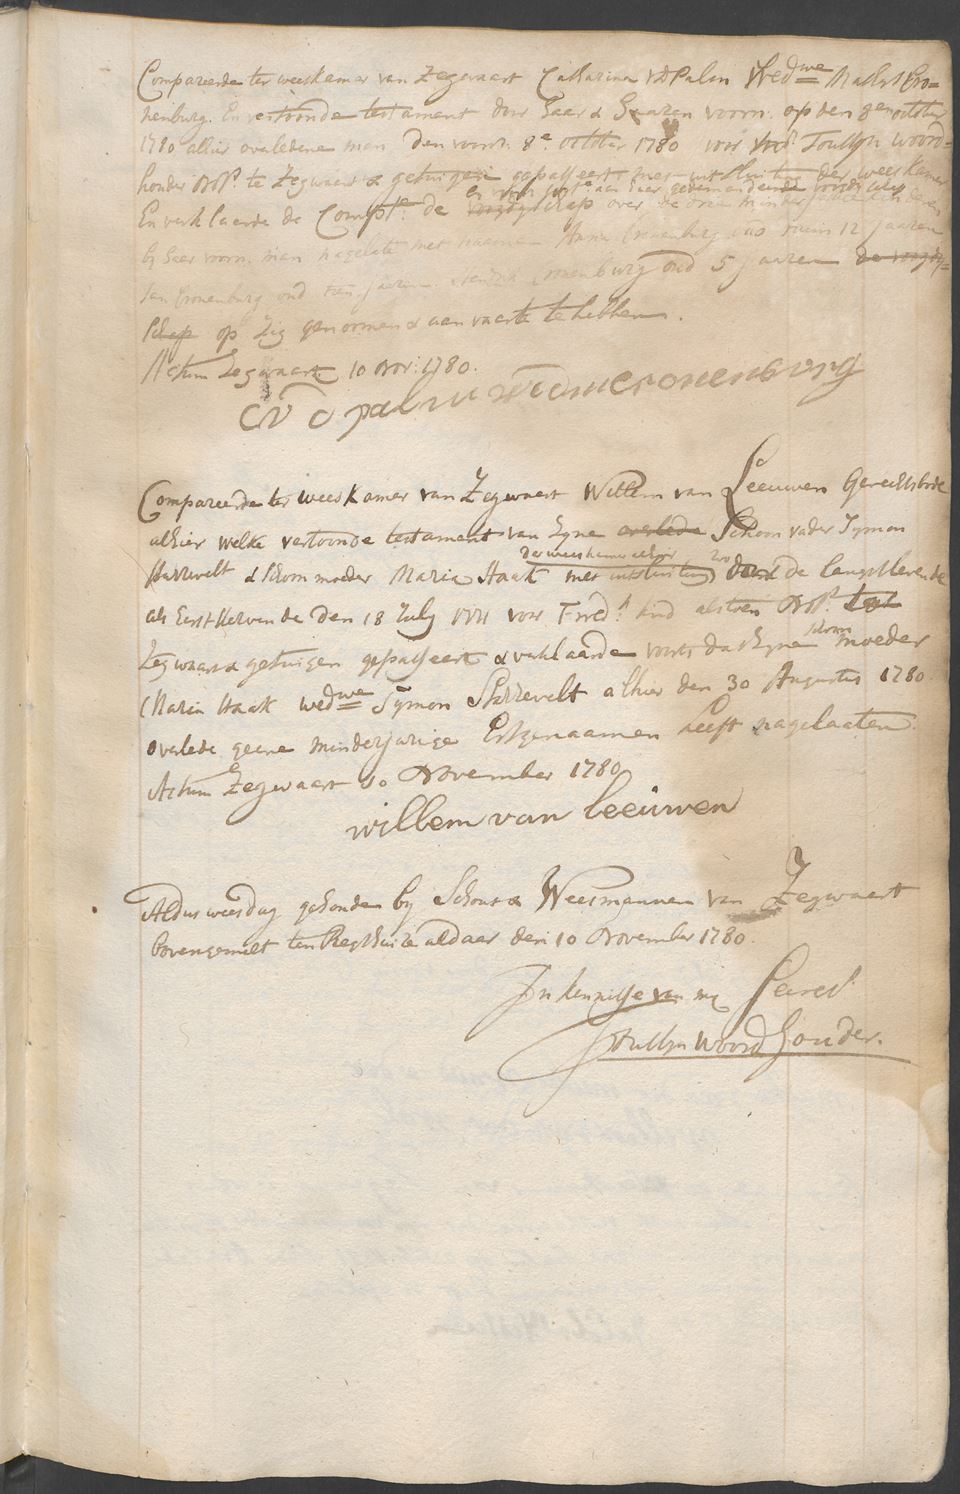 Compareerde ter weeskamer van Zegwaart Catharina vd Palm Wedwe Cro-
nenburg. En vertoonde testament door haar & haaren voorn. op den 8e october
1780 alhier overledene man, den voorn. 8e october 1780 voor Woord-
houder Nots. te Zegwaart & getuigen gepasseert met uitsluiting der weeskamer
En verklaarde de Compte. de voogdyschap over de drie minderjarige kinderen
by haer voorn. man nagelate met naame Anna Cronenburg oud ruim 12 jaaren
Jan Cronenburg oud tien jaaren. Cronenburg oud 5 jaaren de voogdy=
schap op zig genoomen & aanvaart te hebben.
Actum Zegwaart 10 Nov: 1780.
CV D palm wedwe cronenburg
Compareerde ter weeskamer van Zegwaert Willem van Leeuwen Gerechtsbode
alhier welke vertoonde testament van Zyne overlede Schoon vader Symon
Starrevelt & schoonmoeder Maria Haak met uitsluiting der weeskamer alhier zoo door de langstlevende
als Eerststervende den 18 July voor Fredk. Nots. tot
Zegwaart & getuigen gepasseert & verklaarde voorts dat Zyne schoon moeder
Maria Haak wedwe Symon Starrevelt alhier den 30 Augustus 1780
overlede geene minderjarige Erfgenaamen heeft nagelaaten.
Actum Zegwaart 10 November 1780
willem van leeuwen
Aldus weesdag gehouden by Schout & Weesmannen van Zegwaert
bovengemelt ten Regthuize aldaar den 10 November 1780.
In kennisse van my Secrets.
Woordhouder.